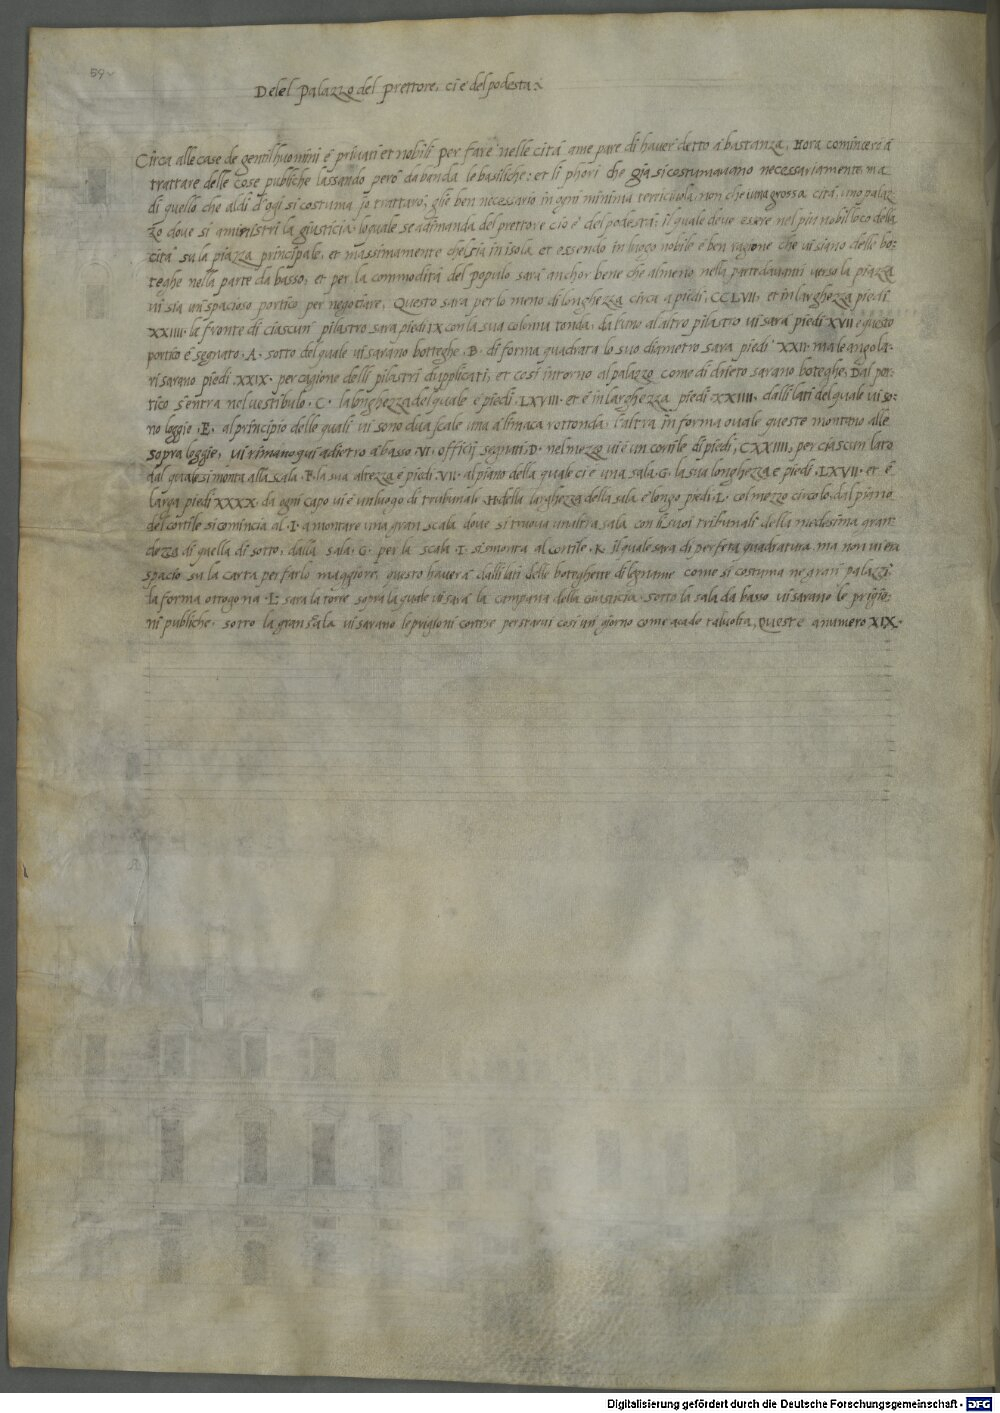 59v
Delel Palazzo del Prettore, ci e del podesta:
Circa alle case de gentilhuomini e privati et nobili per fare nelle cita a me pare di haver detto a bastanza, Hora comincero a
trattare delle cose publiche lassando pero da banda le basiliche: et li phori che gia si costumavano necessariamente, ma
di quello che al di d'ogi si costuma jo trattaro; glie ben necessario in ogni minima terricivola, non che in una grossa cita, uno palaz
zo dove si aministri la giusticia: lo quale se adimanda del prettore cio e del podesta: il quale deve essere nel piu nobil loco della
cita su la piazza principale, et massimamente chel sia in isola et essendo in luogo nobile e ben ragione che vi siano delle bo:
teghe nella parte da basso, et per la commodita del populo sara anchor bene che almeno nella parte davanti verso la piazza
vi sia un spacioso portico per negotiare, Questo sara per lo meno di longhezza circa a piedi, CCLVII, et in larghezza piedi
XXIIII. la fronte di ciascun pilastro sara piedi IX con la sua colonna tonda, da l'uno al altro pilastro vi sara piedi XVII e questo
portico e segnato .A. sotto del quale vi sarano botteghe .B. di forma quadrata lo suo diametro sara piedi XXII. ma le angola:
ri sarano piedi .XXIX. per cagione delli pilastri duplicati, et cosi intorno al palazzo come di drieto sarano boteghe, Dal por:
tico s'entra nel vestibulo .C. la longhezza del quale e piedi .LXVIII. et e in larghezza piedi .XXIIII. dalli lati del quale vi so:
no loggie .E. al principio delle quali vi sono dua scale una a limaca rottonda: l'altra in forma ovale queste montano alle
sopra loggie, vi rimano qui adietro a basso .VI. officij segnati .D. nel mezzo vi e un cortile di piedi, CXXIIII, per ciascun lato
dal quale si monta alla scala .F. la sua altezza e piedi .VII. al piano della quale ci e una sala .G. la sua longhezza e piedi .LXVII. et e
larga piedi XXXX. da ogni capo vi e un luogo di tribunale .H. della larghezza della sala e longo piedi .L. col mezzo circolo, dal piano
del cortile si comincia al .I. a montare una gran scala dove si truova un altra sala con li suoi tribunali della medesima gran:
dezza di quella di sotto, dalla sala .G. per la scala .I. si smonta al cortile .K. il quale sara di perfeta quadratura, ma non vi era
spacio su la carta per farlo maggiore, questo havera dalli lati delle boteghette di legname come si costuma ne gran palazzi
la forma ottogona .L. sara la torre sopra la quale vi sara la campana della giusticia. sotto la sala da basso vi sarano le prigio:
ni publiche. sotto la gran sala vi sarano le prigioni cortese per starvi cosi un giorno come acade talvolta, Quest e a numero XIX.
Digitalisierung gefördert durch die Deutsche Forschungsgemeinschaft - DFG